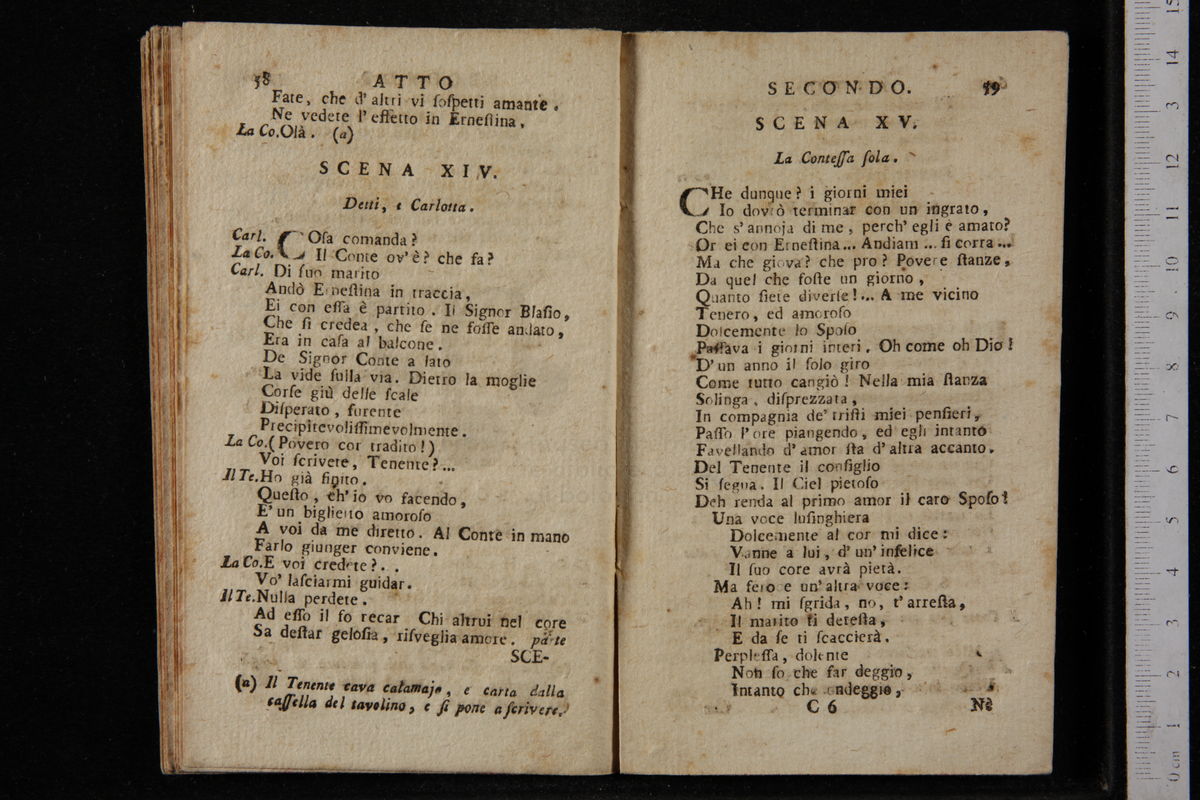 58 ATTO
Fate, che d'altri vi ſoſpetti amante.
Ne vedete l'effetto in Erneſtina.
La Co. Olà. (a)
SCENA XIV.
Detti, e Carlotta.
Carl. COſa comanda?
La Co. Il Conte ov'è? che fa?
Carl. Di ſuo marito
Andò Erneſtina in traccia,
Ei con eſſa è partito. Il Signor Blaſio,
Che ſi credea, che ſe ne foſſe andato,
Era in caſa al balcone.
De Signor Conte a lato
La vide ſulla via. Dietro la moglie
Corſe giù delle ſcale
Diſperato, furente
Precipitevoliſſimevolmente.
La Co. (Povero cor tradito!)
Voi ſcrivete, Tenente?...
Il Te. Ho già finito.
Queſto, ch'io vo facendo,
E' un biglietto amoroſo
A voi da me diretto. Al Conte in mano
Farlo giunger conviene.
La Co. E voi credete?..
Vo' laſciarmi guidar.
Il Te. Nulla perdete.
Ad eſſo il fo recar Chi altrui nel core
Sa deſtar geloſia, riſveglia amore. parte
SCE-
(a) Il Tenente cava calamajo, e carta dalla
caſſella del tavolino, e ſi pone a ſcrivere.
SECONDO. 59
SCENA XV.
La Conteſſa ſola.
CHe dunque? i giorni miei
Io dovrò terminar con un ingrato,
Che s'annoja di me, perch'egli è amato?
Or ei con Erneſtina... Andiam... ſi corra...
Ma che giova? che pro? Povere ſtanze,
Da quel che foſte un giorno,
Quanto ſiete diverſe!... A me vicino
Tenero, ed amoroſo
Dolcemente lo Spoſo
Paſſava i giorni interi. Oh come oh Dio!
D'un anno il ſolo giro
Come tutto cangiò! Nella mia ſtanza
Solinga, diſprezzata,
In compagnia de'triſti miei penſieri,
Paſſo l'ore piangendo, ed egli intanto
Favellando d'amor ſta d'altra accanto.
Del Tenente il conſiglio
Si ſegua. Il Ciel pietoſo
Deh renda al primo amor il caro Spoſo!
Una voce luſinghiera
Dolcemente al cor mi dice:
Vanne a lui, d'un'infelice
Il ſuo core avrà pietà.
Ma fero e un'altra voce:
Ah! mi ſgrida, no, t'arreſta,
Il marito ti deteſta,
E da ſe ti ſcaccierà.
Perpleſſa, dolente
Non ſo che far deggio,
Intanto che ondeggio,
C 6 Nè
0 cm 1 2 3 4 5 6 7 8 9 10 11 12 3 14 15